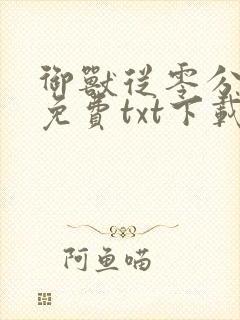 御獸從零分
免費txt下載
阿鱼喵